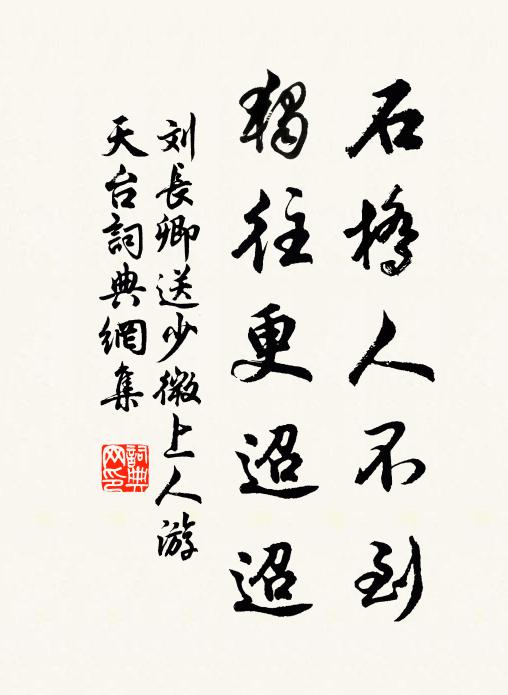 石橋人不到
獨往更迢迢
刘長卿送少微上人游
天台詞典網集
詞典
网印